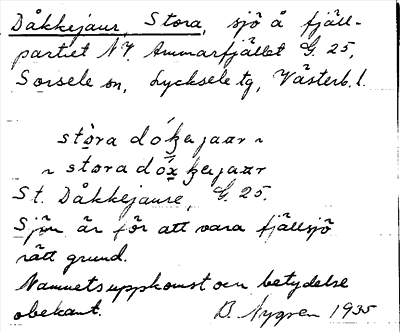 Dåkkejaur, Stora, sjö å fjäll-
partiet NV. Ammarfjället G. 25,
Sorsele sn, Lycksele tg, Västerb. l.
stora
stora
St. Dåkkejaure, G. 25.
Sjön är för att vara fjällsjö
rätt grund.
Namnets uppkomst och betydelse
obekant. B. Nygren 1935